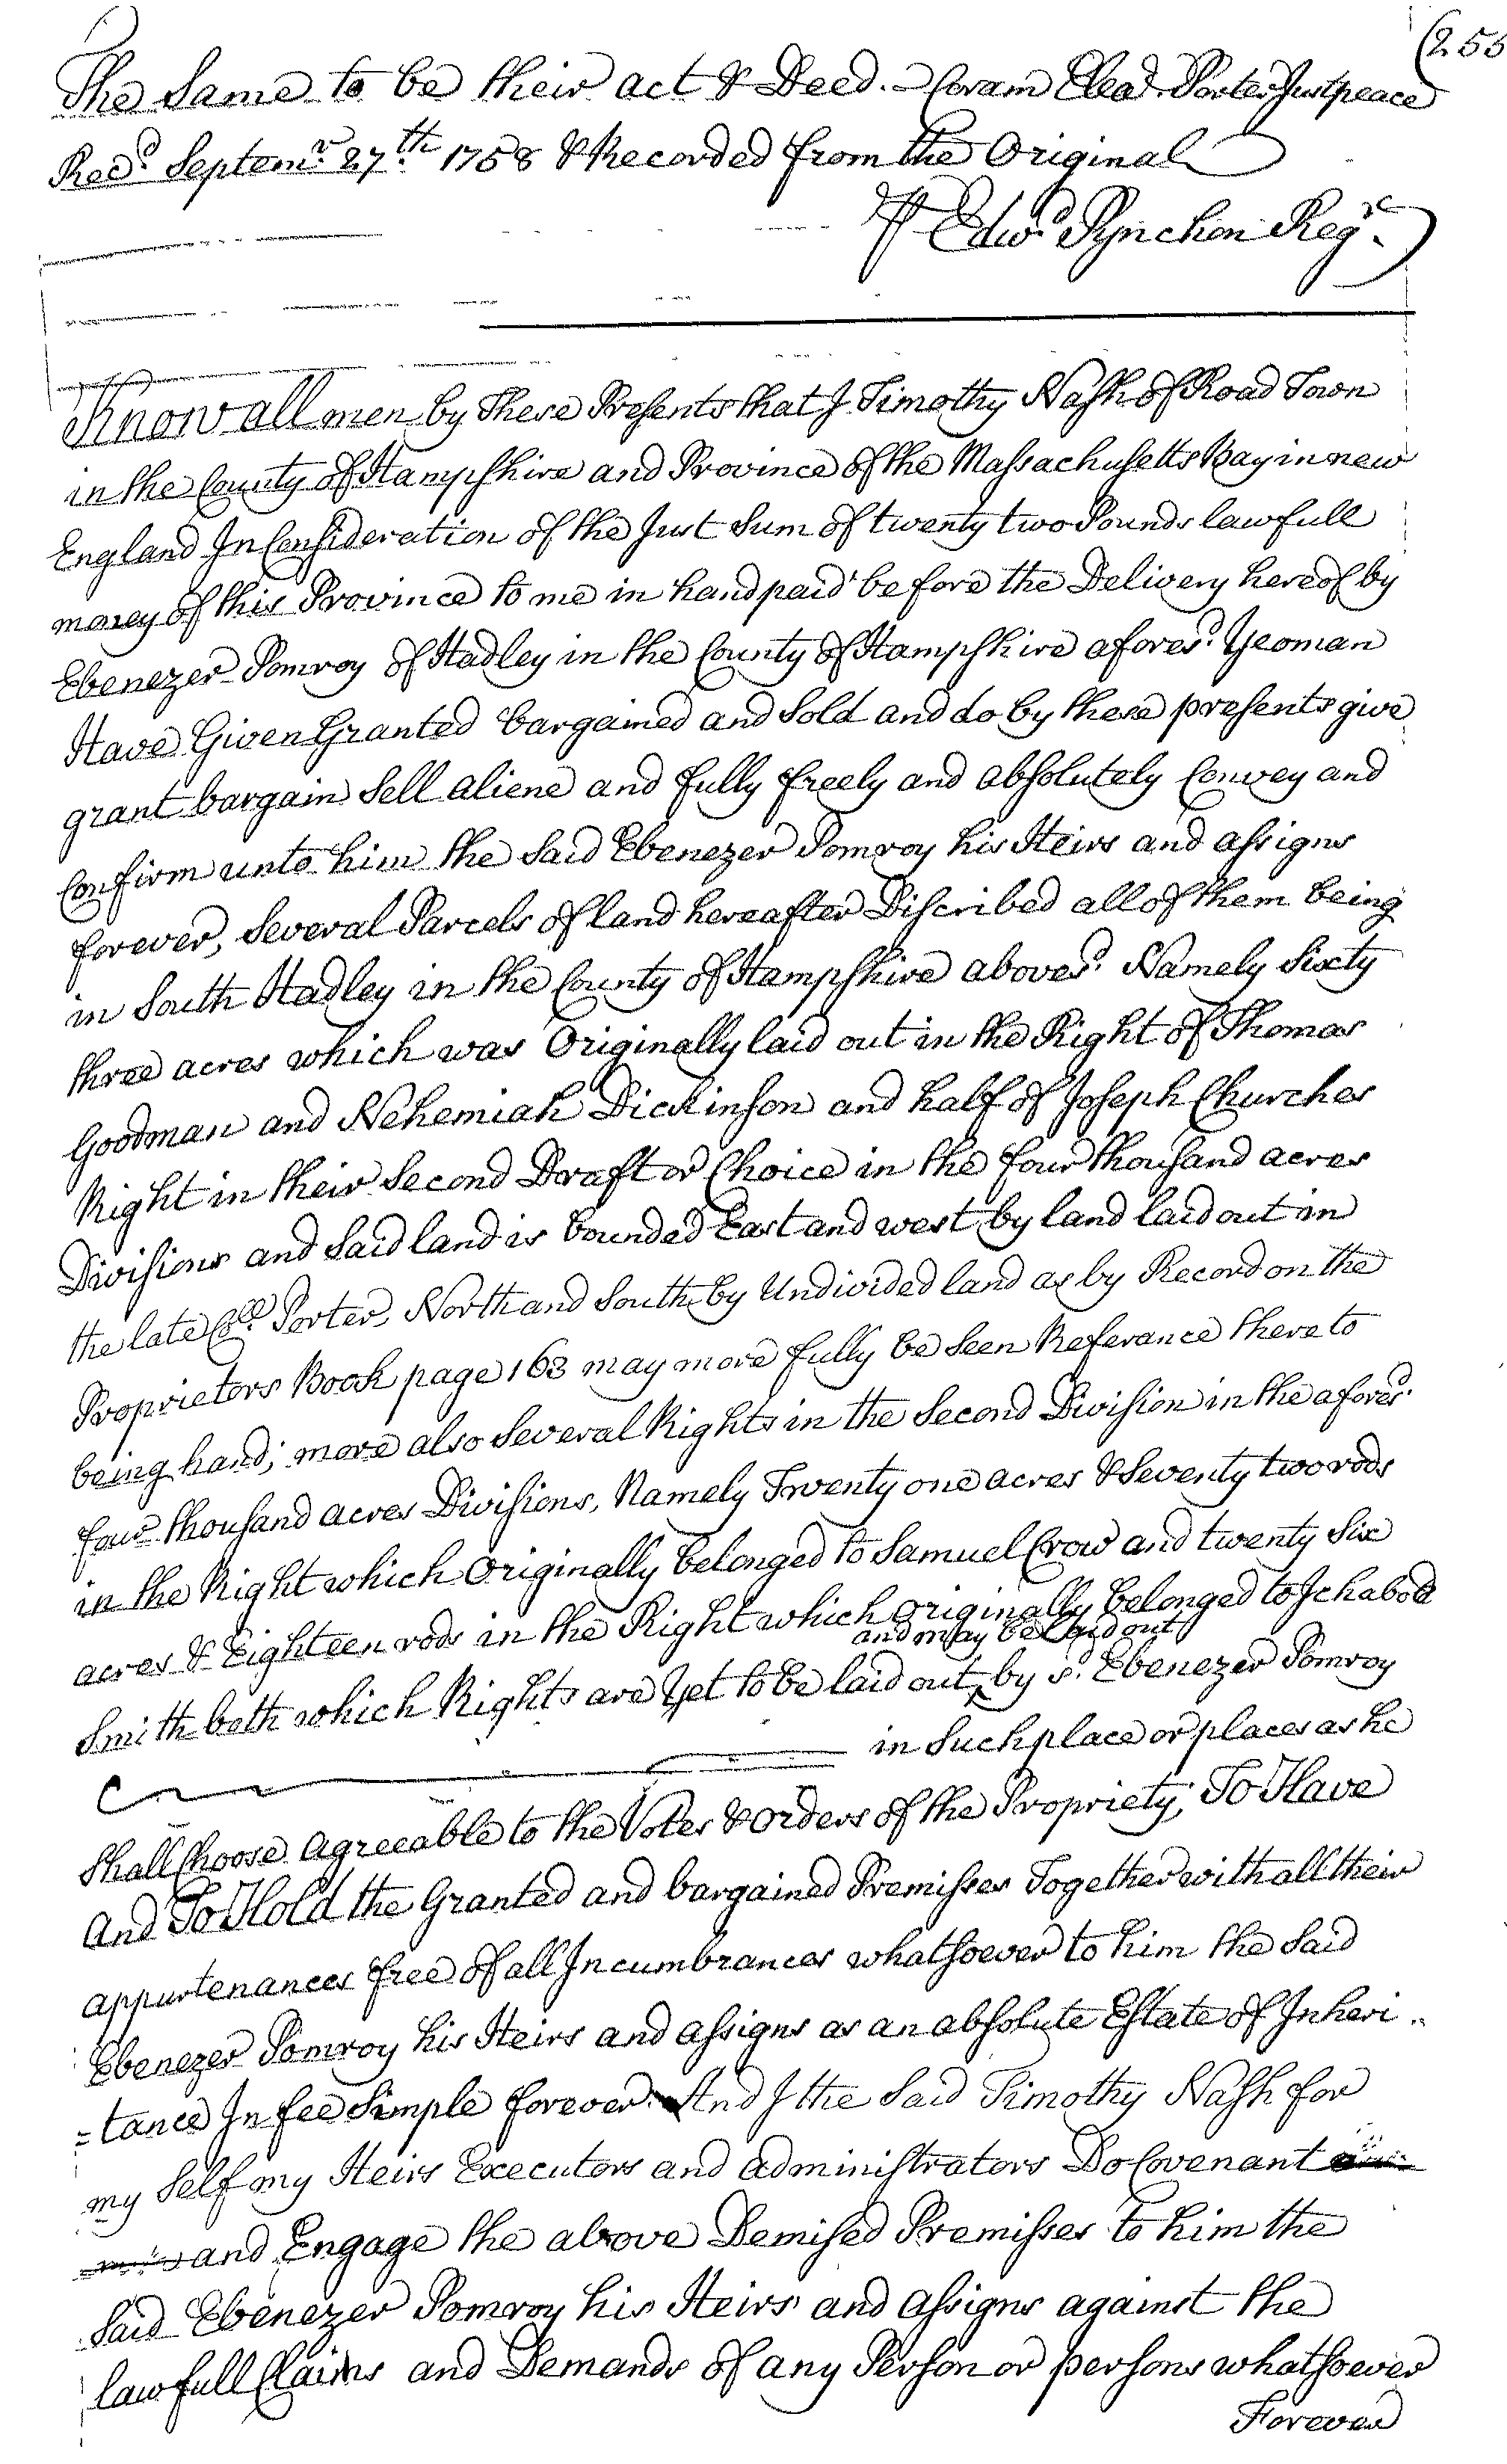 (255
The Same to be their act & Deed. – Coram Elead. Porter Just peace
Recd. Septemr. 27th. 1758 & Recorded from the Original
⅌ Edwd. Pynchon Regr.
Know all men by These Presents that I Timothy Nash of Road Town
in the County of Hampshire and Province of the Massachusetts Bay in new
England In Consideration of the Just Sum of twenty two Pounds lawfull
money of this Province to me in hand paid before the Delivery hereof by
Ebenezer Pomroy of Hadley in the County of Hampshire aforesd. Yeoman
Have Given Granted bargained and Sold and do by these presents give
grant bargain Sell aliene and fully freely and absolutely Convey and
Confirm unto him the Said Ebenezer Pomroy his Heirs and assigns
forever, Several Parcels of land hereafter Discribed all of them being
in South Hadley in the County of Hampshire abovesd. Namely Sixty
three acres which was Originally laid out in the Right of Thomas
Goodman and Nehemiah Dickinson and half of Joseph Churches
Right in their Second Draft or Choice in the four thousand acres
Divisions and Said land is bounded East and west by land laid out in
the late Coll. Porter, North and South by Undivided land as by Record on the
Proprietors Book page 163 may more fully be Seen Referance thereto
being had; more also Several Rights in the Second Division in the aforesd.
four thousand acres Divisions, Namely Twenty one acres & Seventy two rods
in the Right which Originally belonged to Samuel Crow and twenty Six
acres & Eighteen rods in the Right which originally belonged to Ichabod
and may be laid out
Smith both which Rights are Yet to be laid out ‸ by sd. Ebenezer Pomroy
in Such place or places as he
Shall Choose agreeable to the Votes & Orders of the Propriety; To Have
And To Hold the Granted and bargained Premisses Together with all their
appurtenances free of all Incumbrances whatsoever to him the Said
Ebenezer Pomroy his Heirs and assigns as an absolute Estate of Inheri..
=tance In fee Simple forever. And I the Said Timothy Nash for
my Self my Heirs Executors and administrators Do Covenant
and Engage the above Demised Premisses to him the
Said Ebenezer Pomroy his Heirs and assigns against the
lawfull Claims and Demands of any Person or persons whatsoever
Forever